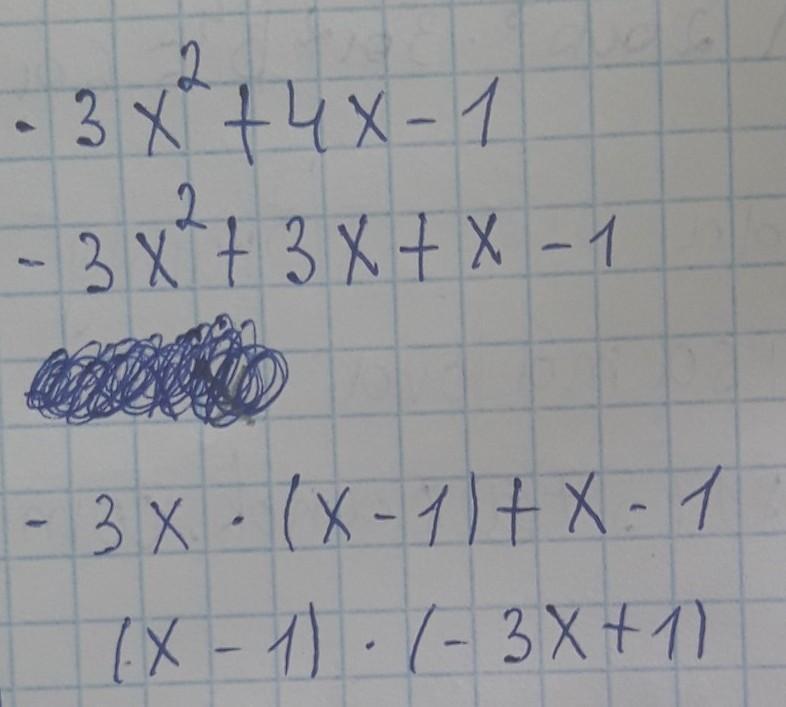 - 3x² + 4x - 1
- 3x² + 3x + x - 1
- 3x · (x - 1) + x - 1
(x - 1) · (- 3x + 1)